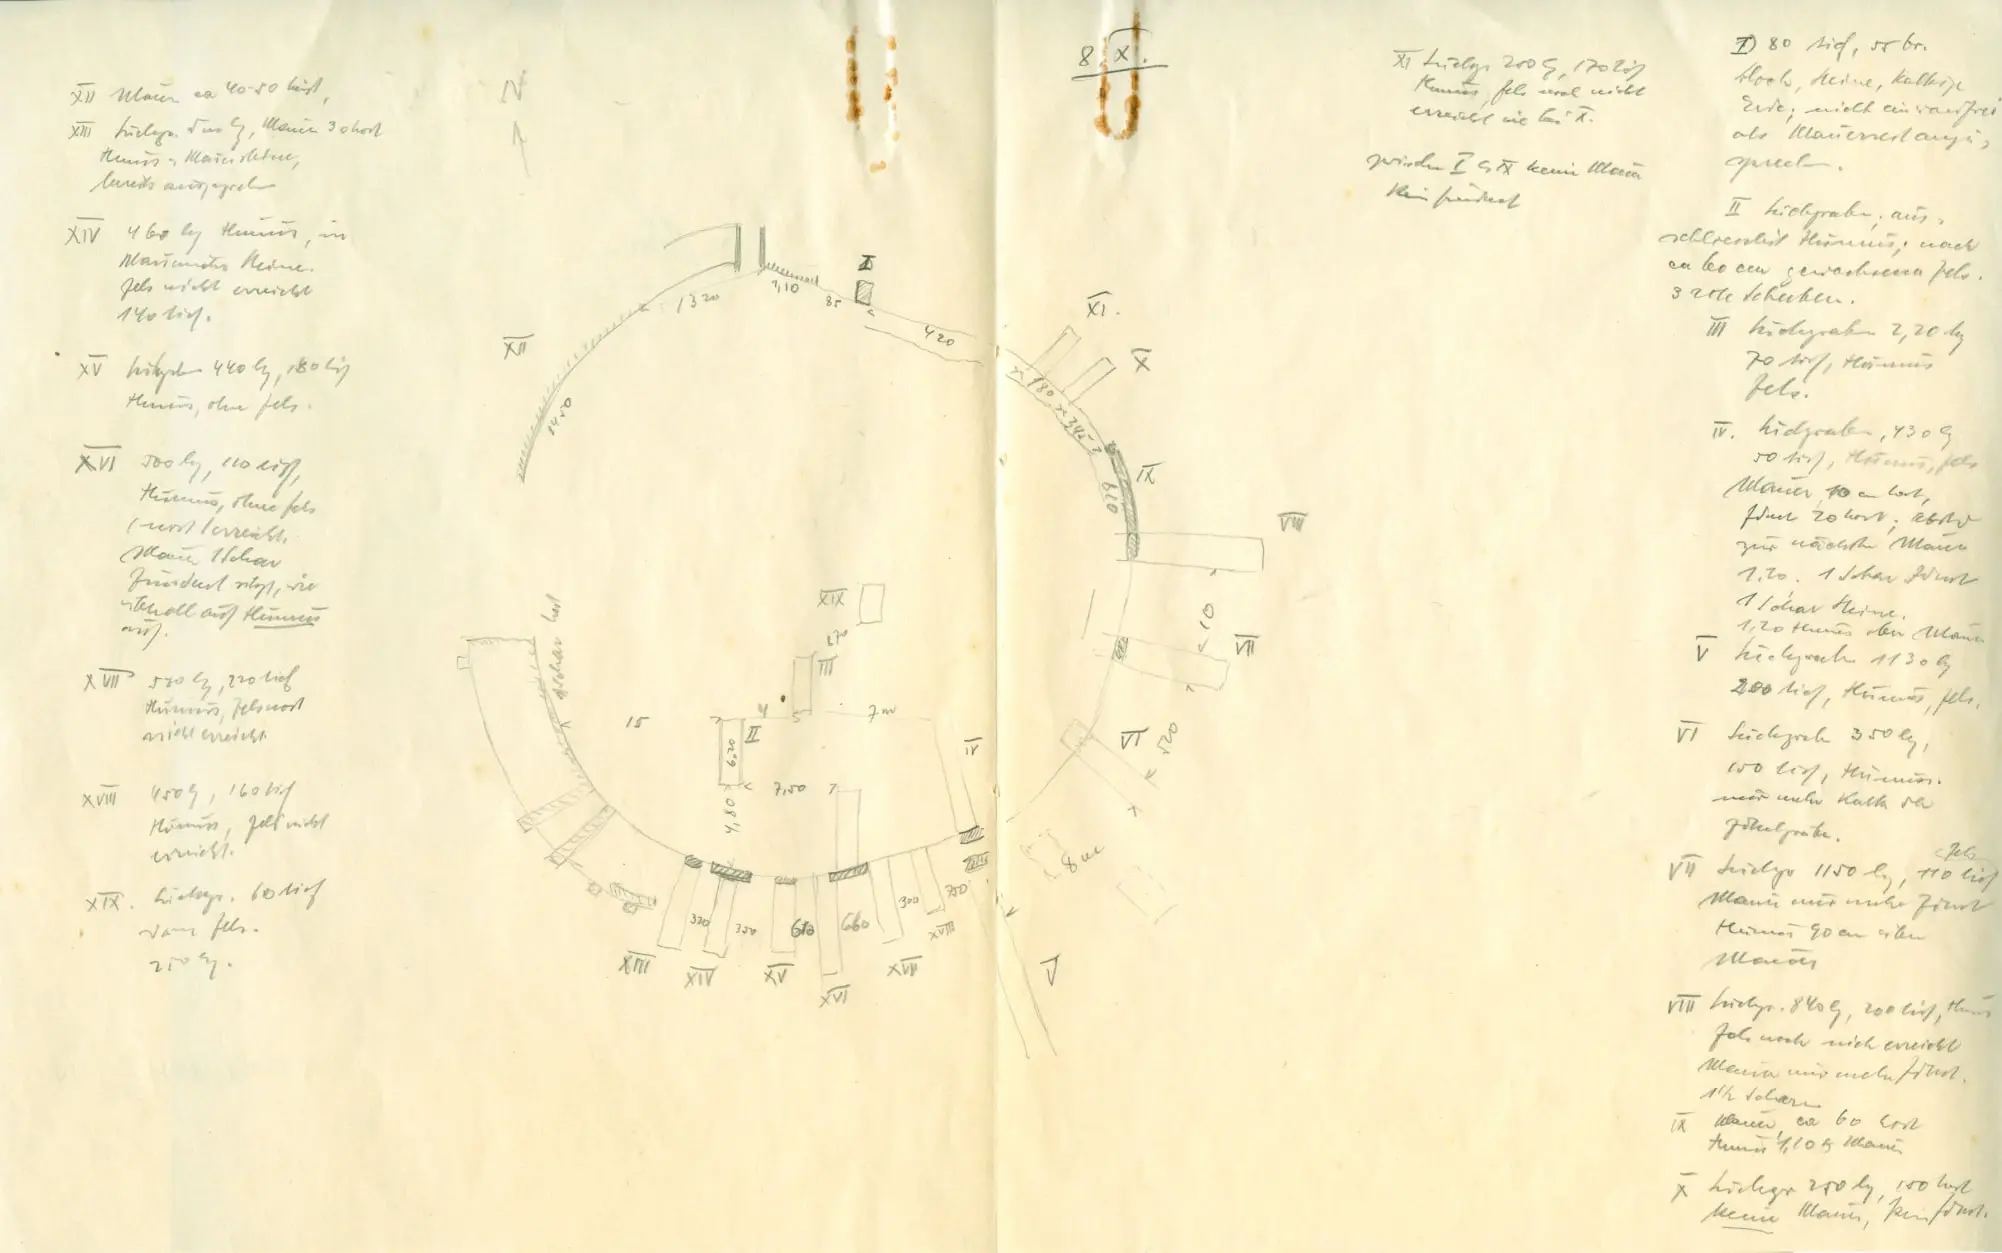 8. X.
XII Mauer ca 40-50 breit,
XIII Suchgr. lg, Mauer 30 hoch
Humus, Mauersteine,
bereits ausgegraben
XIV 460 lg Humus, in
Steine.
Fels nicht erreicht
140 tief.
XV 440 lg, 180 tief
Humus, ohne Fels.
XVI 500 lg, 110 tief,
Humus, ohne Fels
(noch) erreicht.
Mauer 1 Schar
Fundament, wie
überall auf Humus
auf.
XVII 570 lg, 220 tief
Humus, Fels noch
nicht erreicht
XVIII 450 lg, 160 tief
Humus, Fels nicht
erreicht.
XIX. Suchgr. 60 tief
dann Fels.
250 lg.
N
I
1320
1,10
85
420
XII
1450
XI.
X
180
345
IX
620
VIII
XIX
270
III
410
VII
Scharen hoch
15
4
5
7 m
II
6,20
IV
VI
520
7,50
4,80
8 m
320
350
610
660
300
350
XIII
XIV
XV
XVI
XVII
XVIII
V
XI Suchgr. 200 lg, 170 tief
Humus, Fels noch nicht
erreicht wie bei X.
zwischen I & IX keine Mauer
kein Fundament
I) 80 tief, 55 br.
Steine, Kalkige
Erde; nicht einwandfrei
als Mauerrest anzu-
sprechen.
II Suchgraben, aus-
schliesslich Humus; nach
ca 60 cm gewachsener Fels.
3 rote Scherben.
III Suchgraben 2,20 lg
70 tief, Humus
Fels.
IV. Suchgraben, 430 lg
50 tief, Humus, Fels
Mauer 10 cm hoch,
Fdmt 20 hoch; Abstd
zur nächsten Mauer
1.20. 1 Schar Fdmt
1 Schar Steine.
1,20 Humus über Mauer
V Suchgrab 1130 lg
200 tief, Humus, Fels.
VI Suchgrab 350 lg,
150 tief, Humus.
nur mehr Kalk der
VII Suchgr 1150 lg, 110 tief
Fels
Mauer nur mehr Fdmt
Humus 90 cm über
Mauer
VIII Suchgr. 840 lg, 200 tief, Humus
Fels noch nicht erreicht
Mauer nur mehr Fdmt.
1½ Scharen
IX Mauer ca 60 hoch
Humus 1,10 Mauer
X Suchgr 250 lg, 150 hoch
keine Mauer, kein Fdmt.